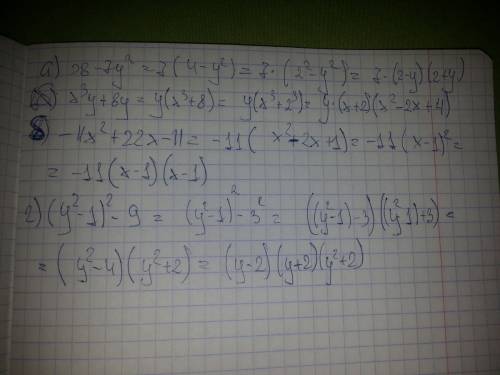 а) 28-7y² = 7(4-y²) = 7·(2²-y²) = 7·(2-y)(2+y)
x³y+8y = y(x³+8) = y(x³+2³) = y·(x+2)(x²-2x+4)
-11x²+22x-11 = -11(x²-2x+1) = -11(x-1)² =
= -11(x-1)(x-1)
2) (y²-1)²-9 = (y²-1)²-3² = ((y²-1)-3)((y²-1)+3) =
= (y²-4)(y²+2) = (y-2)(y+2)(y²+2)